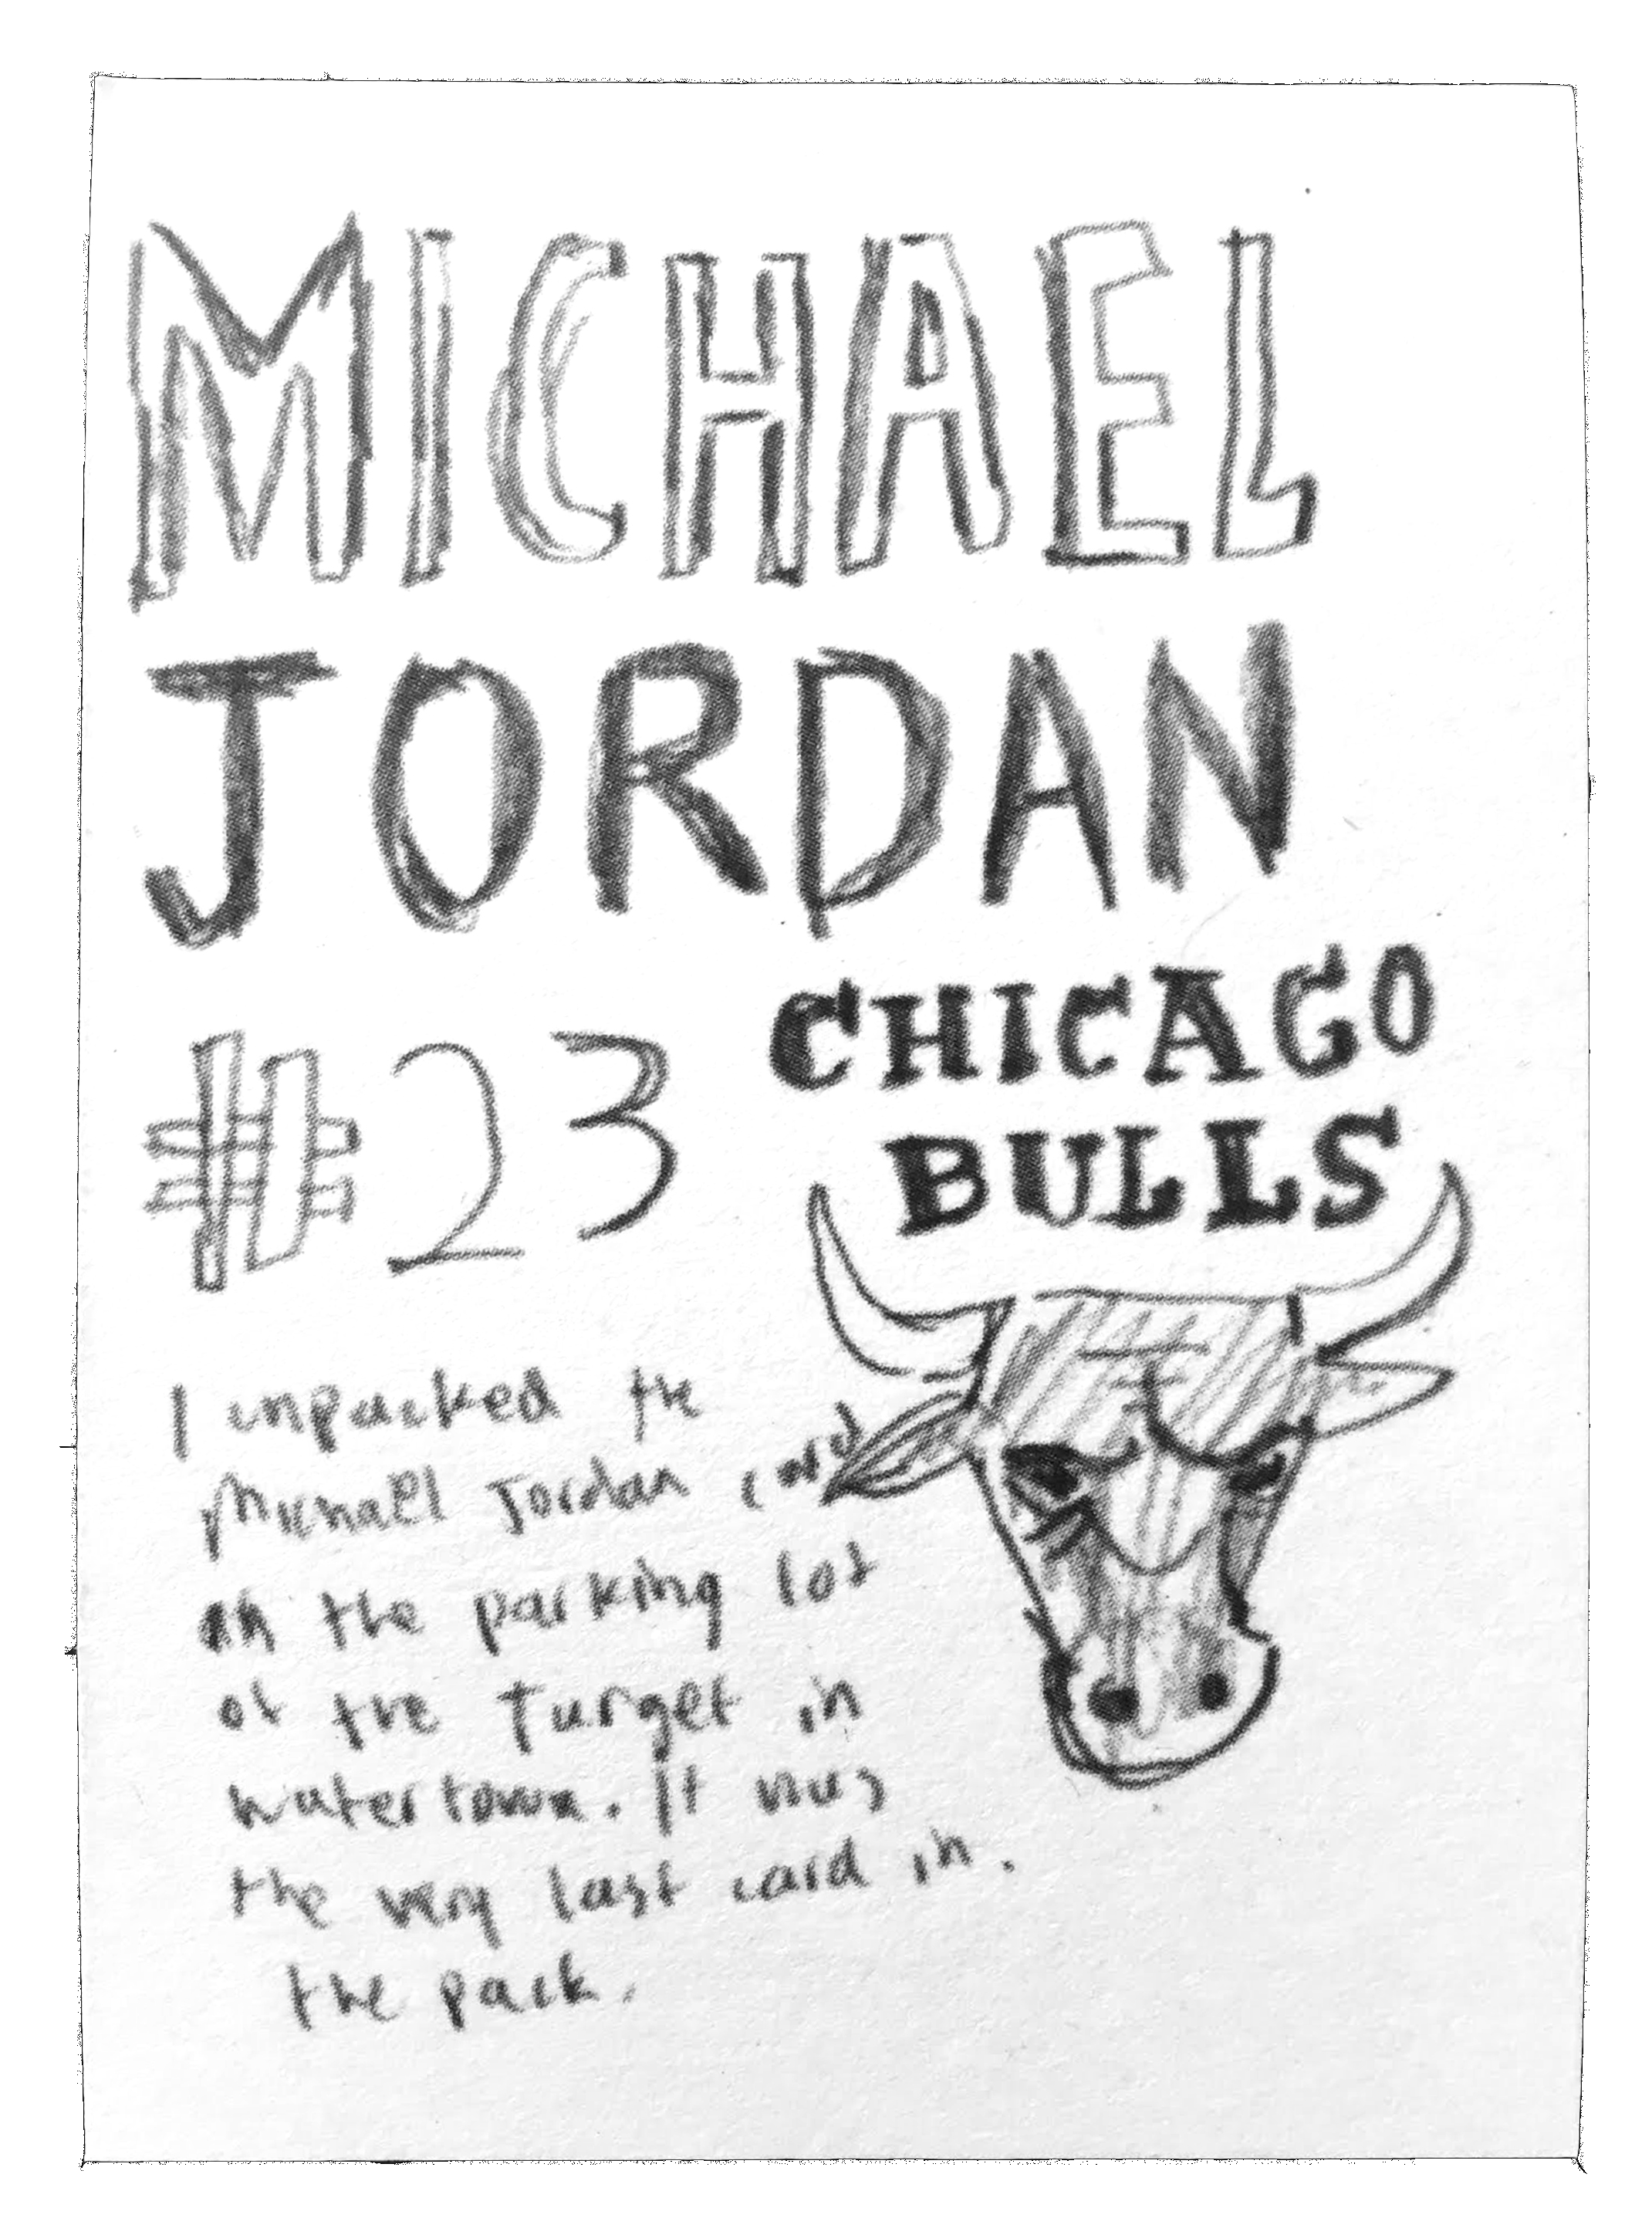 MICHAEL
JORDAN
#23
CHICAGO
BULLS
I unpacked the
Michael Jordan card
in the parking lot
of the Target in
Watertown. It was
the very last card in.
the pack.